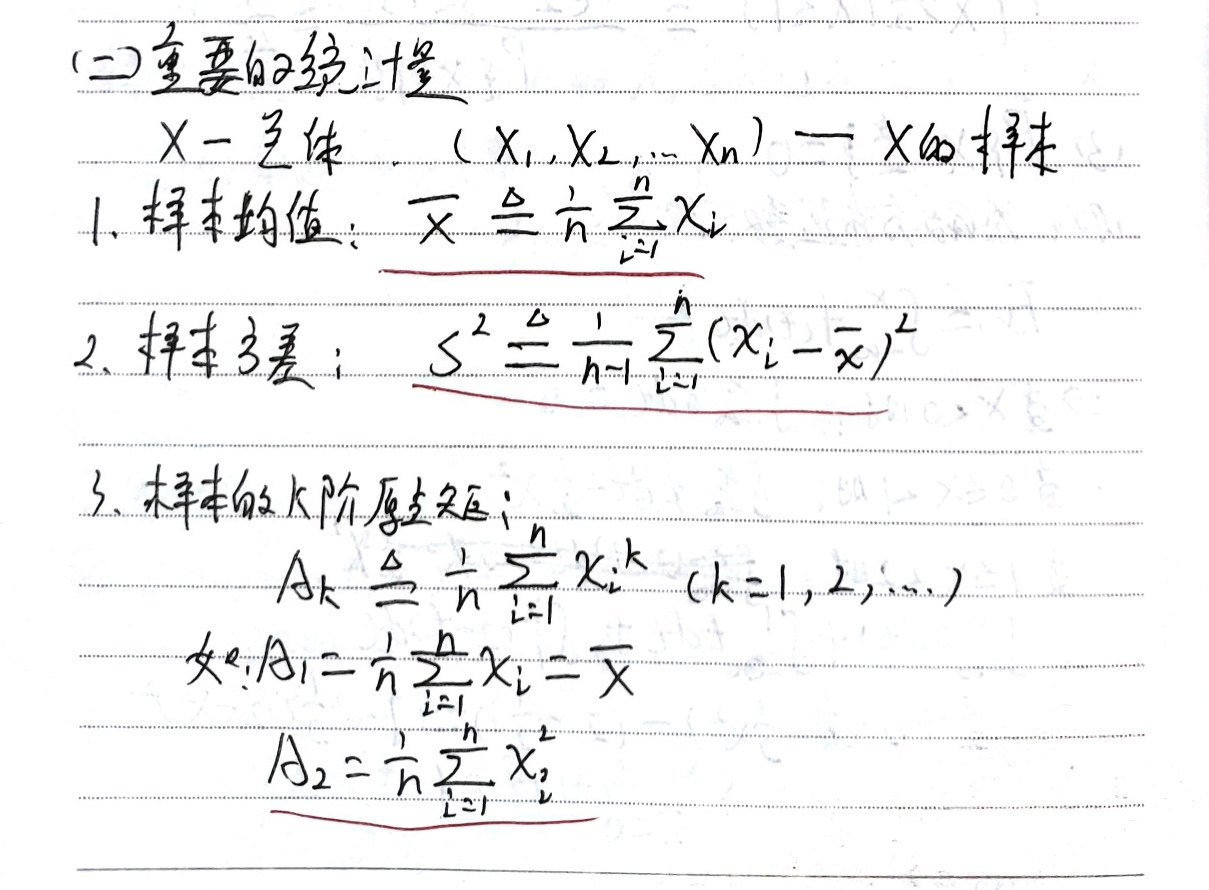 (二)重要的统计量
X — 总体. (X₁, X₂, … Xₙ) — X的样本
1. 样本均值: X̅ ≜ 1/n ∑ᵢ₌₁ⁿ Xᵢ
2. 样本方差: S² ≜ 1/(n-1) ∑ᵢ₌₁ⁿ (Xᵢ - X̅)²
3. 样本的k阶原点矩:
Aₖ ≜ 1/n ∑ᵢ₌₁ⁿ Xᵢᵏ (k=1, 2, …)
如: A₁ = 1/n ∑ᵢ₌₁ⁿ Xᵢ = X̅
A₂ = 1/n ∑ᵢ₌₁ⁿ Xᵢ²